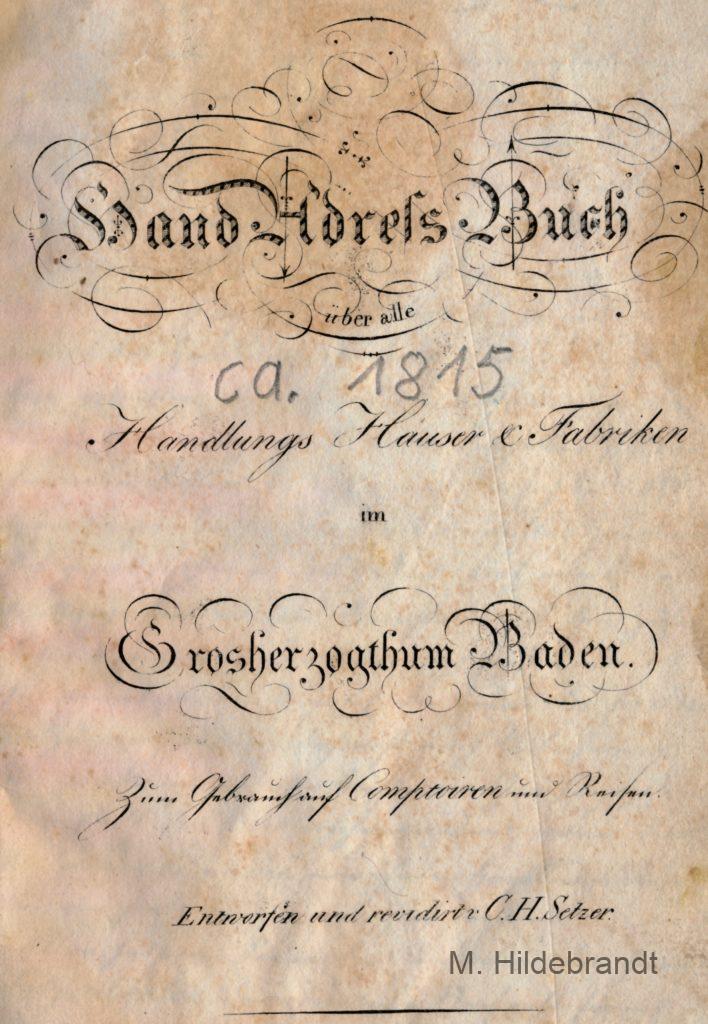 Hand Adreſs Buch
über alle
ca. 1815
Handlungs Hauser & Fabriken
im
Grosherzogthum Baden.
Zum Gebrauch auf Comptoiren und Reisen.
Entworfen und revidirt v C. H. Setzer.
M. Hildebrandt